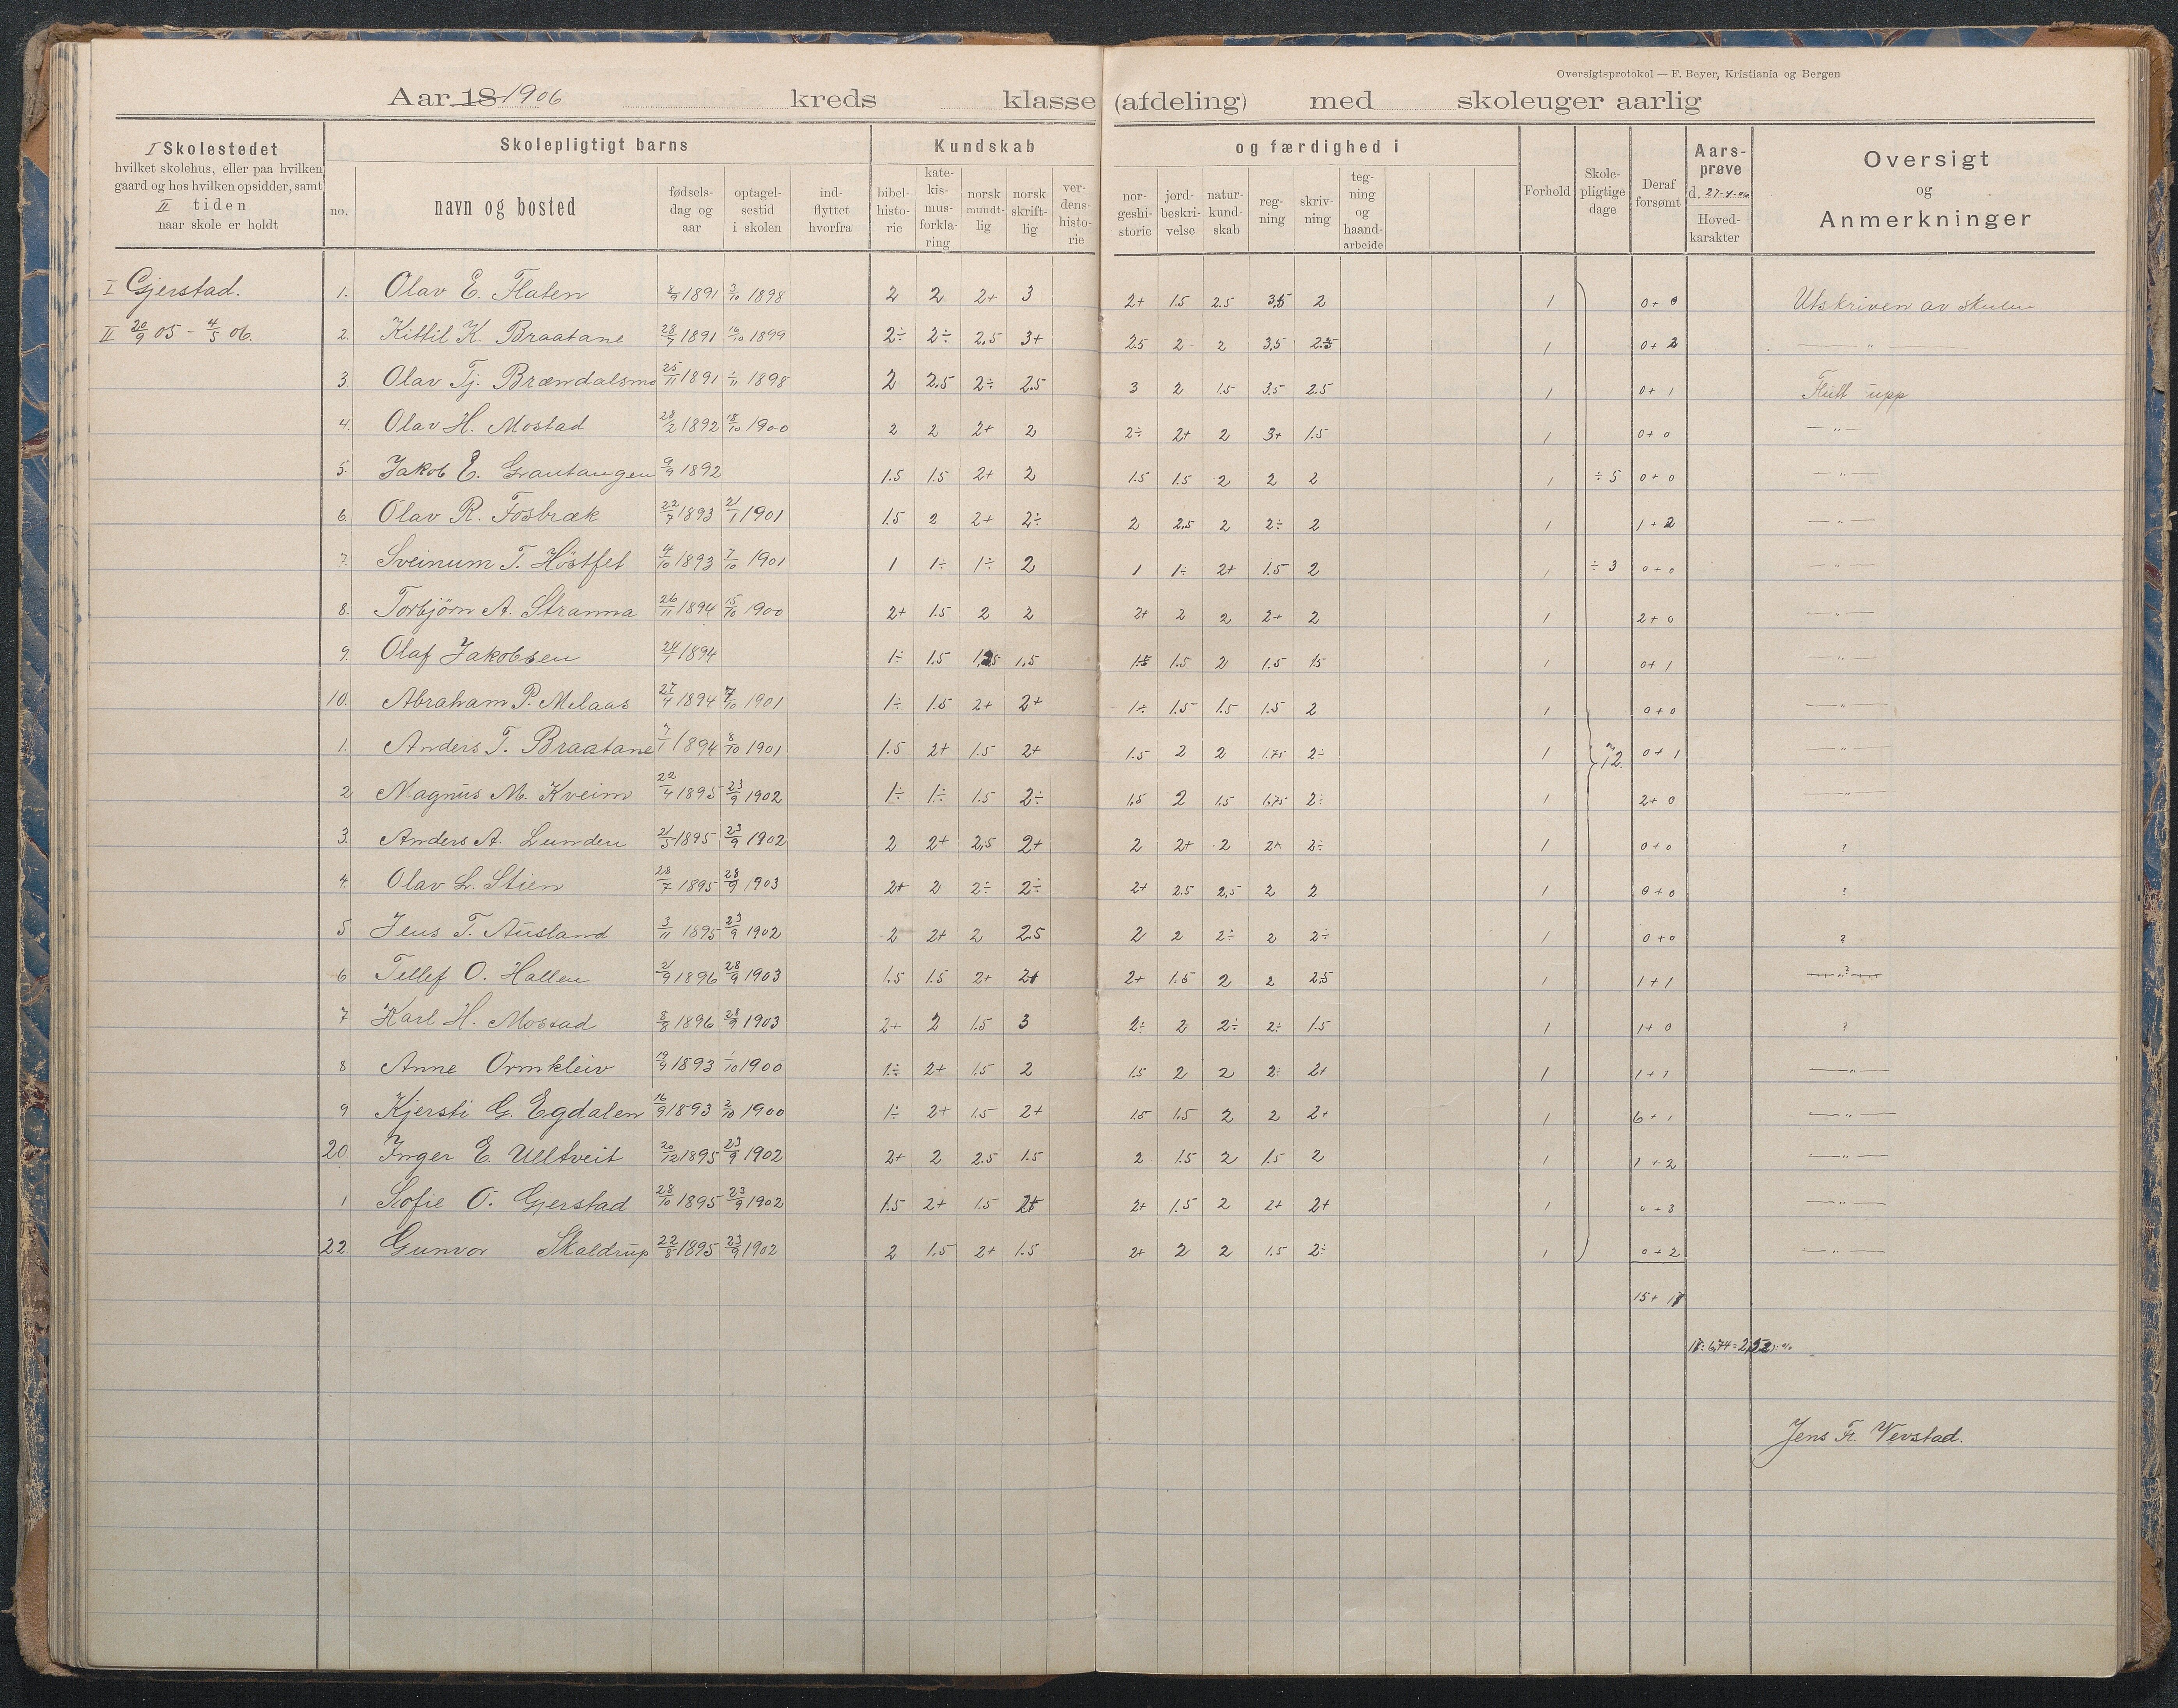 Oversigtsprotokol — F. Beyer, Kristiania og Bergen
Aar 18 1906 kreds klasse (afdeling) med skoleuger aarlig
I Skolestedet
hvilket skolehus, eller paa hvilken
gaard og hos hvilken opsidder, samt
II tiden
naar skole er holdt
Skolepligtigt barns
no. navn og bosted
fødsels-
dag og
aar
optagel-
sestid
i skolen
ind-
flyttet
hvorfra
Kundskab og færdighed i
bibel-
histo-
rie
kate-
kis-
mus-
forkla-
ring
norsk
mundt-
lig
norsk
skrift-
lig
ver-
dens-
histo-
rie
nor-
geshi-
storie
jord-
beskri-
velse
natur-
kund-
skab
reg-
ning
skriv-
ning
teg-
ning
og
haand-
arbeide
Forhold
Skole-
pligtige
dage
Deraf
forsømt
Aars-
prøve
d. 27-4-06
Hoved-
karakter
Oversigt
og
Anmerkninger
I Gjerstad. 1. Olav E. Flaten 8/9 1891 3/10 1898 2 2 2+ 3 2+ 1.5 2.5 3.5 2 1 0+0 Utskriven av skulen
II 20/9 05 - 4/5 06. 2. Kittil K. Braatane 28/7 1891 16/10 1899 2÷ 2÷ 2.5 3+ 2.5 2 2 3.5 2.5 1 0+2 — " —
3 Olav Tj. Brændalsmo 25/11 1891 1/11 1898 2 2.5 2÷ 2.5 3 2 1.5 3.5 2.5 1 0+1 Flutt upp
4. Olav H. Mostad 28/2 1892 18/10 1900 2 2 2+ 2 2÷ 2+ 2 3+ 1.5 1 0+0 — " —
5. Jakob E. Grautangen 9/9 1892 1.5 1.5 2+ 2 1.5 1.5 2 2 2 1 ÷ 5 0+0 — " —
6. Olav R. Fosbræk 22/7 1893 21/1 1901 1.5 2 2+ 2÷ 2 2.5 2 2÷ 2 1 1+2 — " —
7. Sveinum T. Høstfet 4/10 1893 7/10 1901 1 1÷ 1÷ 2 1 1÷ 2+ 1.5 2 1 ÷ 3 0+0 — " —
8. Torbjørn A. Stranna 26/11 1894 15/10 1900 2+ 1.5 2 2 2+ 2 2 2+ 2 1 2+0 — " —
9. Olaf Jakobsen 24/1 1894 1÷ 1.5 1.5 1.5 2 1.5 1.5 1 0+1 — " —
10. Abraham P. Melaas 27/4 1894 7/10 1901 1÷ 1.5 2+ 2+ 1÷ 1.5 1.5 1.5 2 1 0+0 — " —
1. Anders T. Braatane 7/1 1894 8/10 1901 1.5 2+ 1.5 2+ 1.5 2 2 1.75 2÷ 1 72. 0+1 — " —
2 Magnus M. Kveim 22/4 1895 23/9 1902 1÷ 1÷ 1.5 2÷ 1.5 2 1.5 1.75 2÷ 1 2+0 — " —
3. Anders A. Lunden 21/5 1895 23/9 1902 2 2+ 2.5 2+ 2 2+ 2 2+ 2÷ 1 0+0 ?
4. Olav L. Stien 28/7 1895 28/9 1903 2+ 2 2÷ 2÷ 2+ 2.5 2.5 2 2 1 0+0 ?
5 Jens T. Ausland 3/11 1895 23/9 1902 2 2+ 2 2.5 2 2 2÷ 2 2÷ 1 0+0 ?
6 Tellef O. Hallen 21/9 1896 28/9 1903 1.5 1.5 2+ 2+ 2+ 1.5 2 2 2.5 1 1+1 — ? —
7 Karl H. Mostad 8/8 1896 28/9 1903 2+ 2 1.5 3 2÷ 2 2÷ 2÷ 1.5 1 1+0 ?
8 Anne Ormkleiv 19/9 1893 1/10 1900 1÷ 2+ 1.5 2 1.5 2 2 2÷ 2+ 1 1+1 — " —
9 Kjersti G. Egdalen 16/9 1893 2/10 1900 1÷ 2+ 1.5 2+ 1.5 1.5 2 2 2+ 1 6+1 — " —
20. Inger E. Ulltveit 20/12 1895 23/9 1902 2+ 2 2.5 1.5 2 1.5 2 1.5 2 1 1+2 — " —
1 Sofie O. Gjerstad 28/10 1895 23/9 1902 1.5 2+ 1.5 2+ 2+ 1.5 2 2+ 2+ 1 0+3 — " —
22. Gunvor Skaldrup 22/8 1895 23/9 1902 2 1.5 2+ 1.5 2+ 2 2 1.5 2÷ 1 0+2 — " —
15+17
Jens Fr. Verstad.